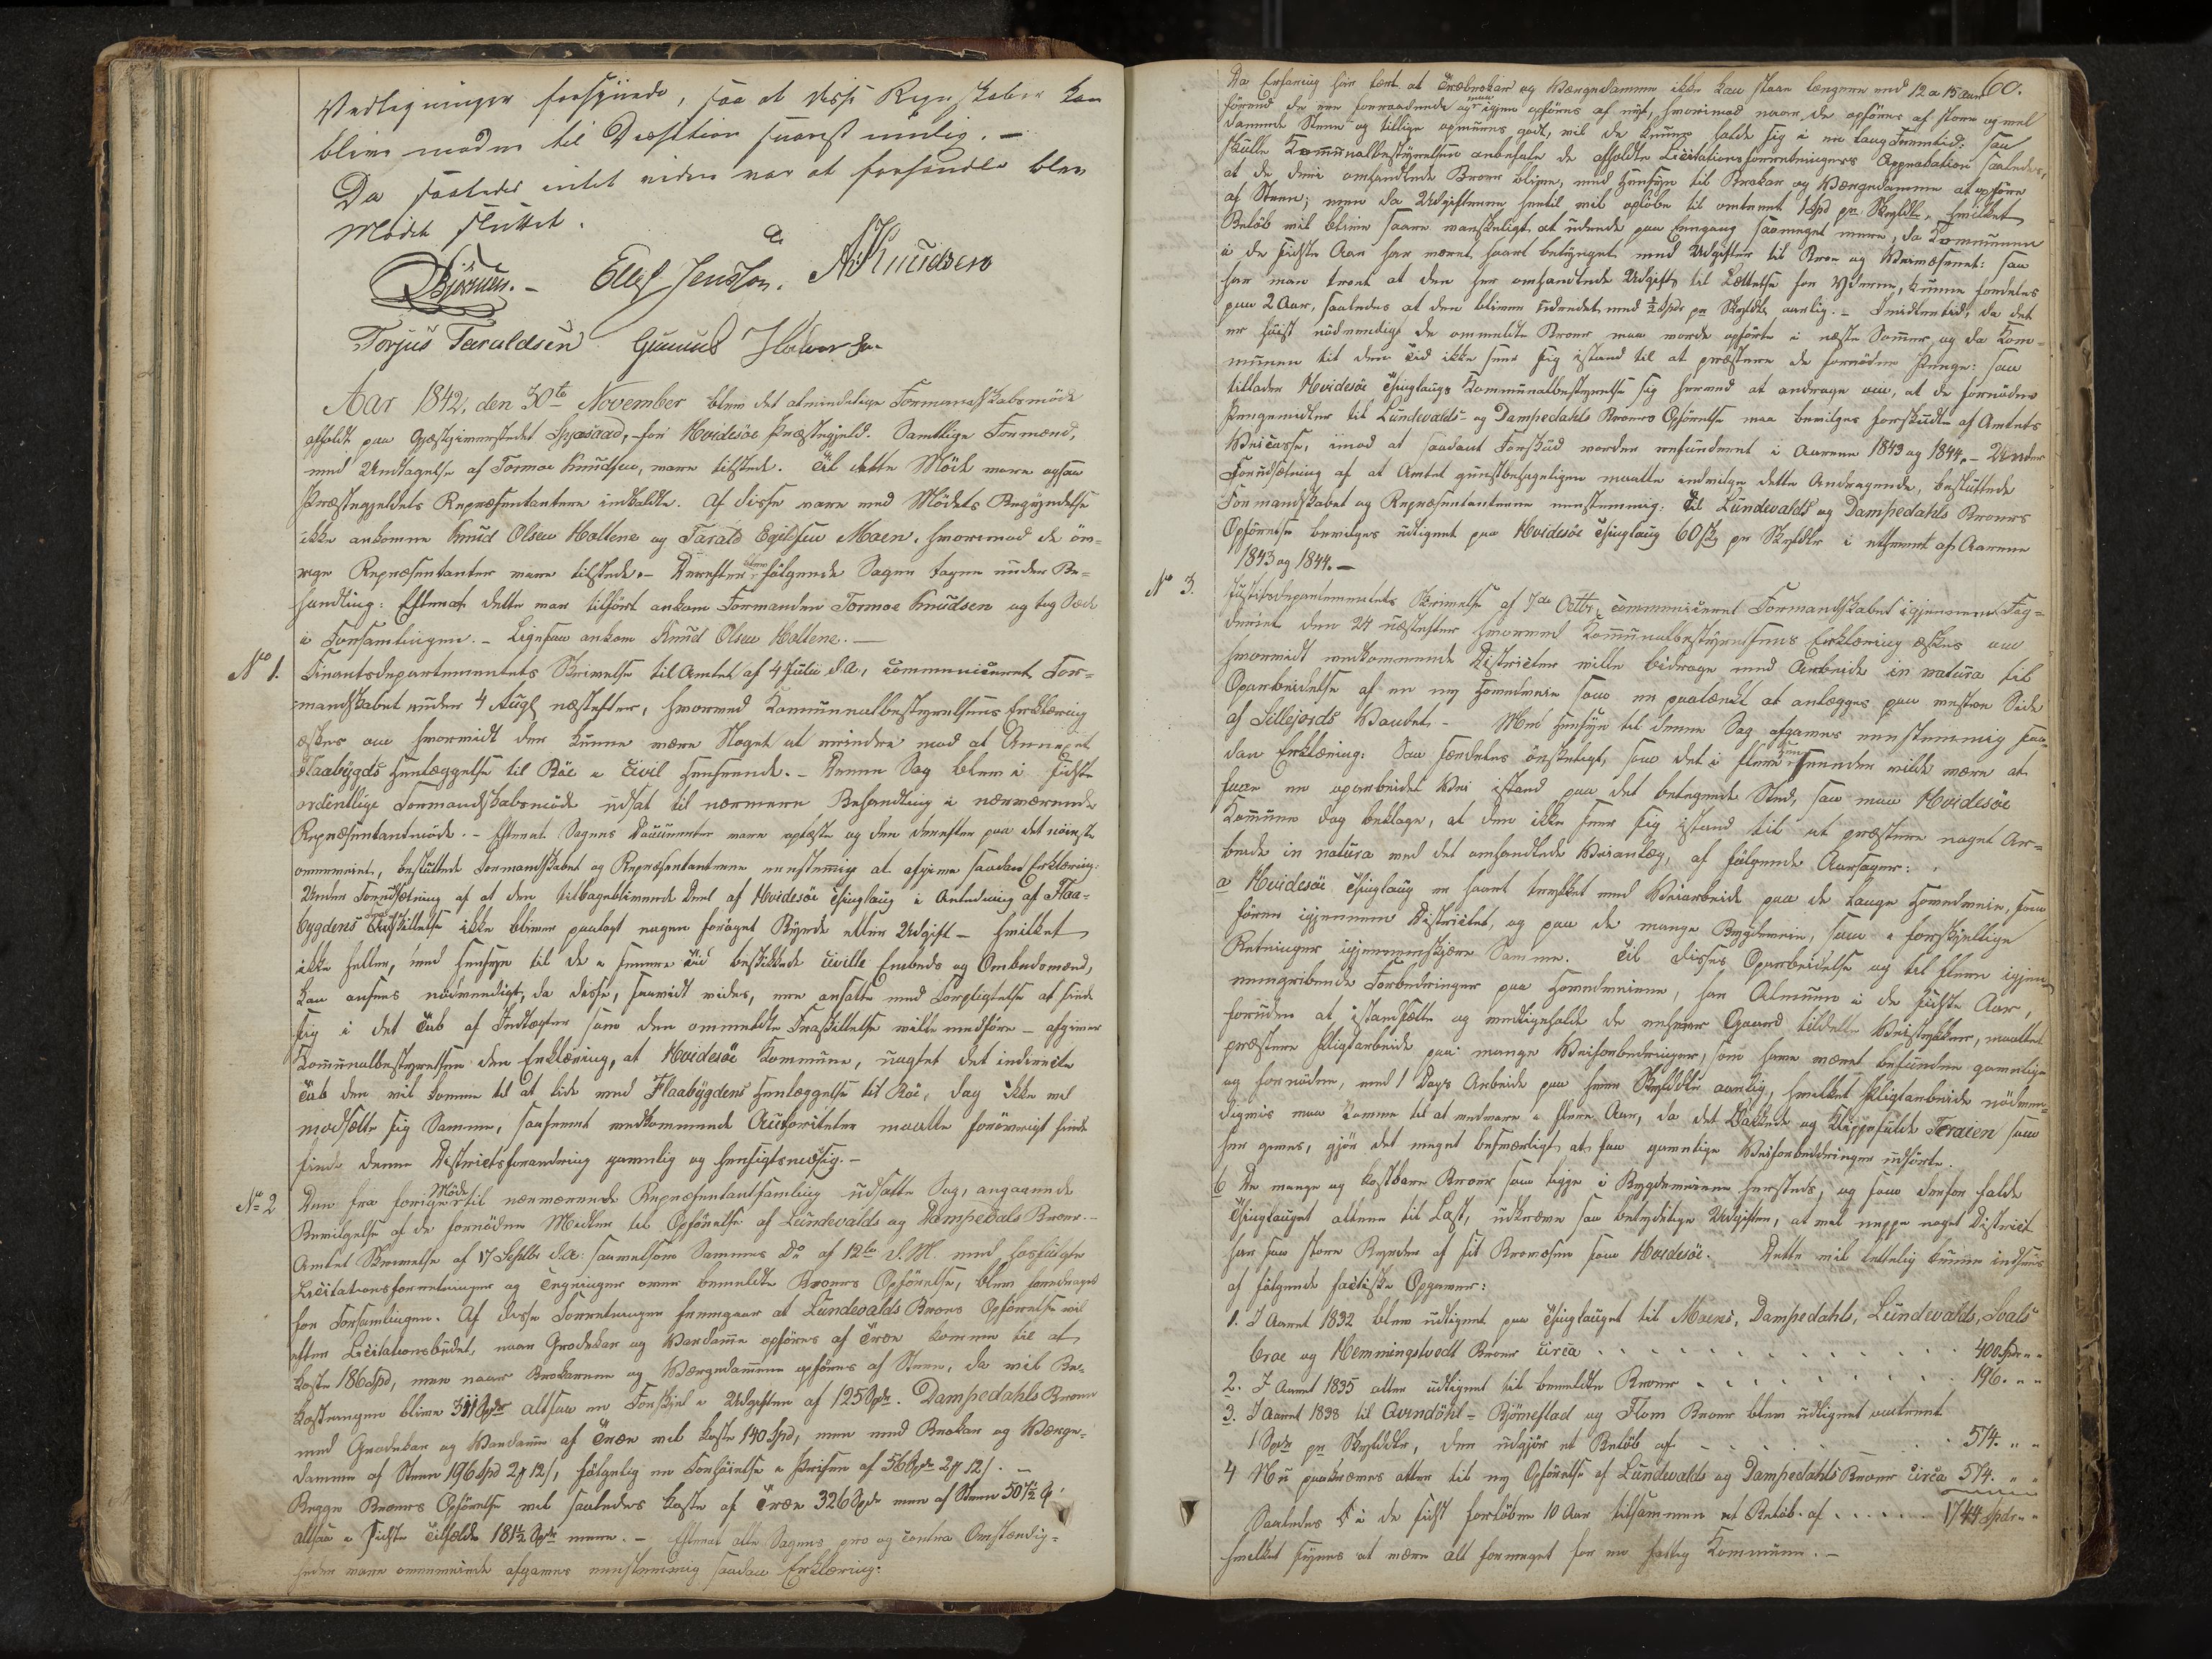 Vedtegninger forsynede, saa at disse Regnskaber kan
blive moden til Decision snarest mulig. —
Da saaledes intet videre var at forhandle blev
Mødet sluttet.
Ellef Jensson. A. Knudsen
Torjus Taraldsen Gunnul Halvorsen
Aar 1842, den 30te November blev det almindelige Formandskabsmöde
afholdt paa Gjæstgiverstedet Spaaaad, for Hvidesöe Præstegjeld. Samtlige Formænd,
med Undtagelse af Tormoe Knudsen, vare tilstede. Til dette Möde vare ogsaa
Præstegjeldets Repræsentantere indkaldte. Af disse vare ved Mödets Begyndelse
ikke ankomne Knud Olsen Haltene og Tarald Egildsen Moen, hvorimod de öv-
rige Repræsentanter vare tilstede. — Derefter blev fölgende Sager tagne under Be-
handling: Efterat dette var tilfört ankom Formanden Tormoe Knudsen og tog Sæde
i Forsamlingen. — Ligesaa ankom Knud Olsen Haltene. —
No 1. Finantsdepartementets Skrivelse til Amtet af 4 Julii d.A., communiceret For-
mandskabet under 4 Augs næstefter, hvorved Kommunalbestyrelsens Erklæring
æskes om hvorvidt der kunne være Noget at erindre mod at Annexet
Flaabygds Henlæggelse til Böe i civil Henseende. — Denne Sag blev i sidste
ordentlige Formandskabsmöde udsat til nærmere Behandling i nærværende
Repræsentantmöde. — Efterat Sagens Documenter vare oplæste og den derefter paa det nöieste
overveiet, besluttede Formandskabet og Repræsentanterne eenstemmig at afgive saadan Erklæring:
Under Forudsætning af at den tilbageblivende Deel af Hvidesöe Thinglaug i Anledning af Flaa-
bygdens Fraskillelse ikke bliver paalagt nogen foröget Byrde eller Udgift — hvilket
ikke heller, med Hensyn til de i senere Tid beskikkede civille Embeds og Ombudsmænd,
kan ansees nödvendigt, da disse, saavidt vides, ere ansatte med Forpligtelse at finde
sig i det Tab af Indtægter som den ommeldte Fraskillelse ville medföre — afgiver
Kommunalbestyrelsen den Erklæring, at Hvidesöe Kommune, uagtet det indirecte
Tab den vil komme til at lide ved Flaabygdens Henlæggelse til Böe, dog ikke vil
modsætte sig Samme, saafremt vedkommende Authoriteter maatte forövrigt finde
finde denne Districtsforandring gavnlig og hensigtsmæsig. —
No 2 Den fra forige Möde til nærværende Repræsentantsamling udsatte Sag, angaaende
Bevilgelse af de fornödne Midler til Opförelse af Lundevalds og Dampedals Broer. —
Amtet Skrivelse af 17 Septbr d.A: saavelsom Sammes Do af 12te d.M. med hosfulgte
Licitationsforretninger og Tegninger over bemeldte Broers Opförelse, blev foredraget
for Forsamlingen. Af disse Forretninger fremgaar at Lundevalds Broes Opförelse vil
efter Licitationsbudet, naar Brokar og Vardamme opföres af Træe komme til at
koste 186 Spd, men naar Brokarrene og Værgedammene opföres af Steen, da vil Be-
kostningen blive 311 Spdr altsaa en Forskjel i Udgiften af 125 Spdr. Dampedahls Broe
med Brokar og Vardamme af Træe vil koste 140 Spd, men med Brokar og Værge-
damme af Steen 196 Spd 2 12/, fölgelig en Forhöielse i Prisen af 56 Spdr 2 12/.
Begge Broers Opförelse vil saaledes koste af Træe 326 Spdr men af Steen 507½
altsaa i sidste Tilfælde 181½ Spdr mere. — Efterat alle Sagens pro og contra Omstændig-
heder vare overveiede afgaves eenstemmig saadan Erklæring:
60.
Da Erfaring har lært at Træbrokar og Værgedamme ikke kan staae længere end 12 a 15 Aar
förend de ere forraadnede og maa igjen opföres af nyt, hvorimod naar de opföres af store og vel
dannede Stene og tillige opmures godt, vil de kunne holde sig i en lang Fremtid: saa
skulle Kommunalbestyrelsen anbefale de afholdte Licitationsforretningers Approbation saaledes,
at de deri omhandlede Broer blive, med Hensyn til Brokar og Værgedamme at opföre
af Steen; men da Udgifterne hertil vil oplöbe til omtrent 1 Spd pr Skylddlr, hvilket
Belöb vil blive saare vanskeligt at udrede paa Eengang saameget mere, da Kommunen
i de sidste Aar har været haart betynget med Udgifter til Broe og Veivæsenet: saa
har man troet at den her omhandlede Udgift til Lettelse for Yderne, kunne fordeles
paa 2 Aar, saaledes at den bliver udredet med ½ Spdr pr Skylddlr aarlig. — Imidlertid, da det
er höist nödvendigt de ommeldte Broer maa vorde opförte i næste Sommer, og da Kom-
munen til den Tid ikke seer sig istand til at præstere de fornödne Penge: saa
tillader Hvidesöe Thinglaugs Kommunalbestyrelse sig herved at andrage om, at de fornödne
Pengemidler til Lundevalds- og Dampedahls Broers Opförelse maa bevilges forskudte af Amtets
Veicasse, imod at saadant Forskud vorder refunderet i Aarene 1843 og 1844. — Under
Forudsætning af at Amtet gunstbehageligen maatte indvilge dette Andragende, besluttede
Formandskabet og Repræsentanterne eenstemmig: Til Lundevalds og Dampedahls Broers
Opförelse bevilges udlignet paa Hvidesöe Thinglaug 60 sk pr Skylddlr i ethvert af Aarene
1843 og 1844. —
No 3. Justitsdepartementets Skrivelse af 7de Octbr, communiceret Formandskabet igjennem Fog-
deriet den 24 næstefter hvorved Kommunalbestyrelsens Erklæring æskes om
hvorvidt vedkommende Districter ville bidrage med Arbeide in natura til
Oparbeidelse af en ny Hovedveie som er paatænkt at anlægges paa vestre Side
af Sillejords Vandet. — Med Hensyn til denne Sag afgaves eenstemmig saa-
dan Erklæring: Saa særdeles önskeligt, som det i flere Henseender vilde være at
faae en oparbeidet Vei istand paa det betegnede Sted, saa maa Hvidesöe
Kommune dog beklage, at den ikke seer sig istand til at præstere noget Ar-
beide in natura ved det omhandlede Veianlæg, af fölgende Aarsager:
a Hvidesöe Thinglaug er haart trykket med Veiarbeide paa de lange Hovedveie, som
förer igjennem Districtet, og paa de mange Bygdeveie, som i forskjellige
Retninger igjennemskjære Samme. Til disses Oparbeidelse og til flere igjen-
nemgribende Forbedringer paa Hovedveiene, har Almuen i de sidste Aar,
foruden at istandsætte og vedligeholde de enhver Gaard tildelte Veistykker, maattet
præstere Pligtarbeide paa mange Veiforbedringer, som have været befundne gavnlige
og fornödne, med 1 Dags Arbeide paa hver Skylddlr aarlig, hvilket Pligtarbeide nödven-
digviis maa komme til at vedvare i flere Aar, da det Bakkede og Klippefulde Terrain som
her gives, gjör det meget besværligt at faa gavnlige Veiforbedringer udförte.
b De mange og kostbare Broer som ligge i Bygdeveiene hersteds, og som derfor falde
Thinglauget allene til Last, udkræve saa betydelige Udgifter, at vel neppe noget District
har saa store Byrder af sit Brovæsen som Hvidesöe. Dette vil letteligt kunne indsees
af fölgende factiske Opgaver:
1. I Aaret 1832 blev udlignet paa Thinglauget til Moens, Dampedahls, Lundevalds, Svals
broe og Hemmingstvedt Broer circa . . . . . . . . . . 400 Spdr " "
2. I Aaret 1835 atter udlignet til bemeldte Broer . . . . . . . . 196. " "
3. I Aaret 1838 til Qvindöhl- Björnestad og Flom Broer blev udlignet omtrent
1 Spdr pr Skylddlr, der udgjör et Belöb af . . . . . . . 574. " "
4 Nu paakræves atter til ny Opförelse af Lundevalds og Dampedahls Broer circa 574. " "
Saaledes i de sidst forlöbne 10 Aar tilsammen et Belöb af . . . . . . 1744 Spdr " "
hvilket synes at være alt formeget for en fattig Kommune. —